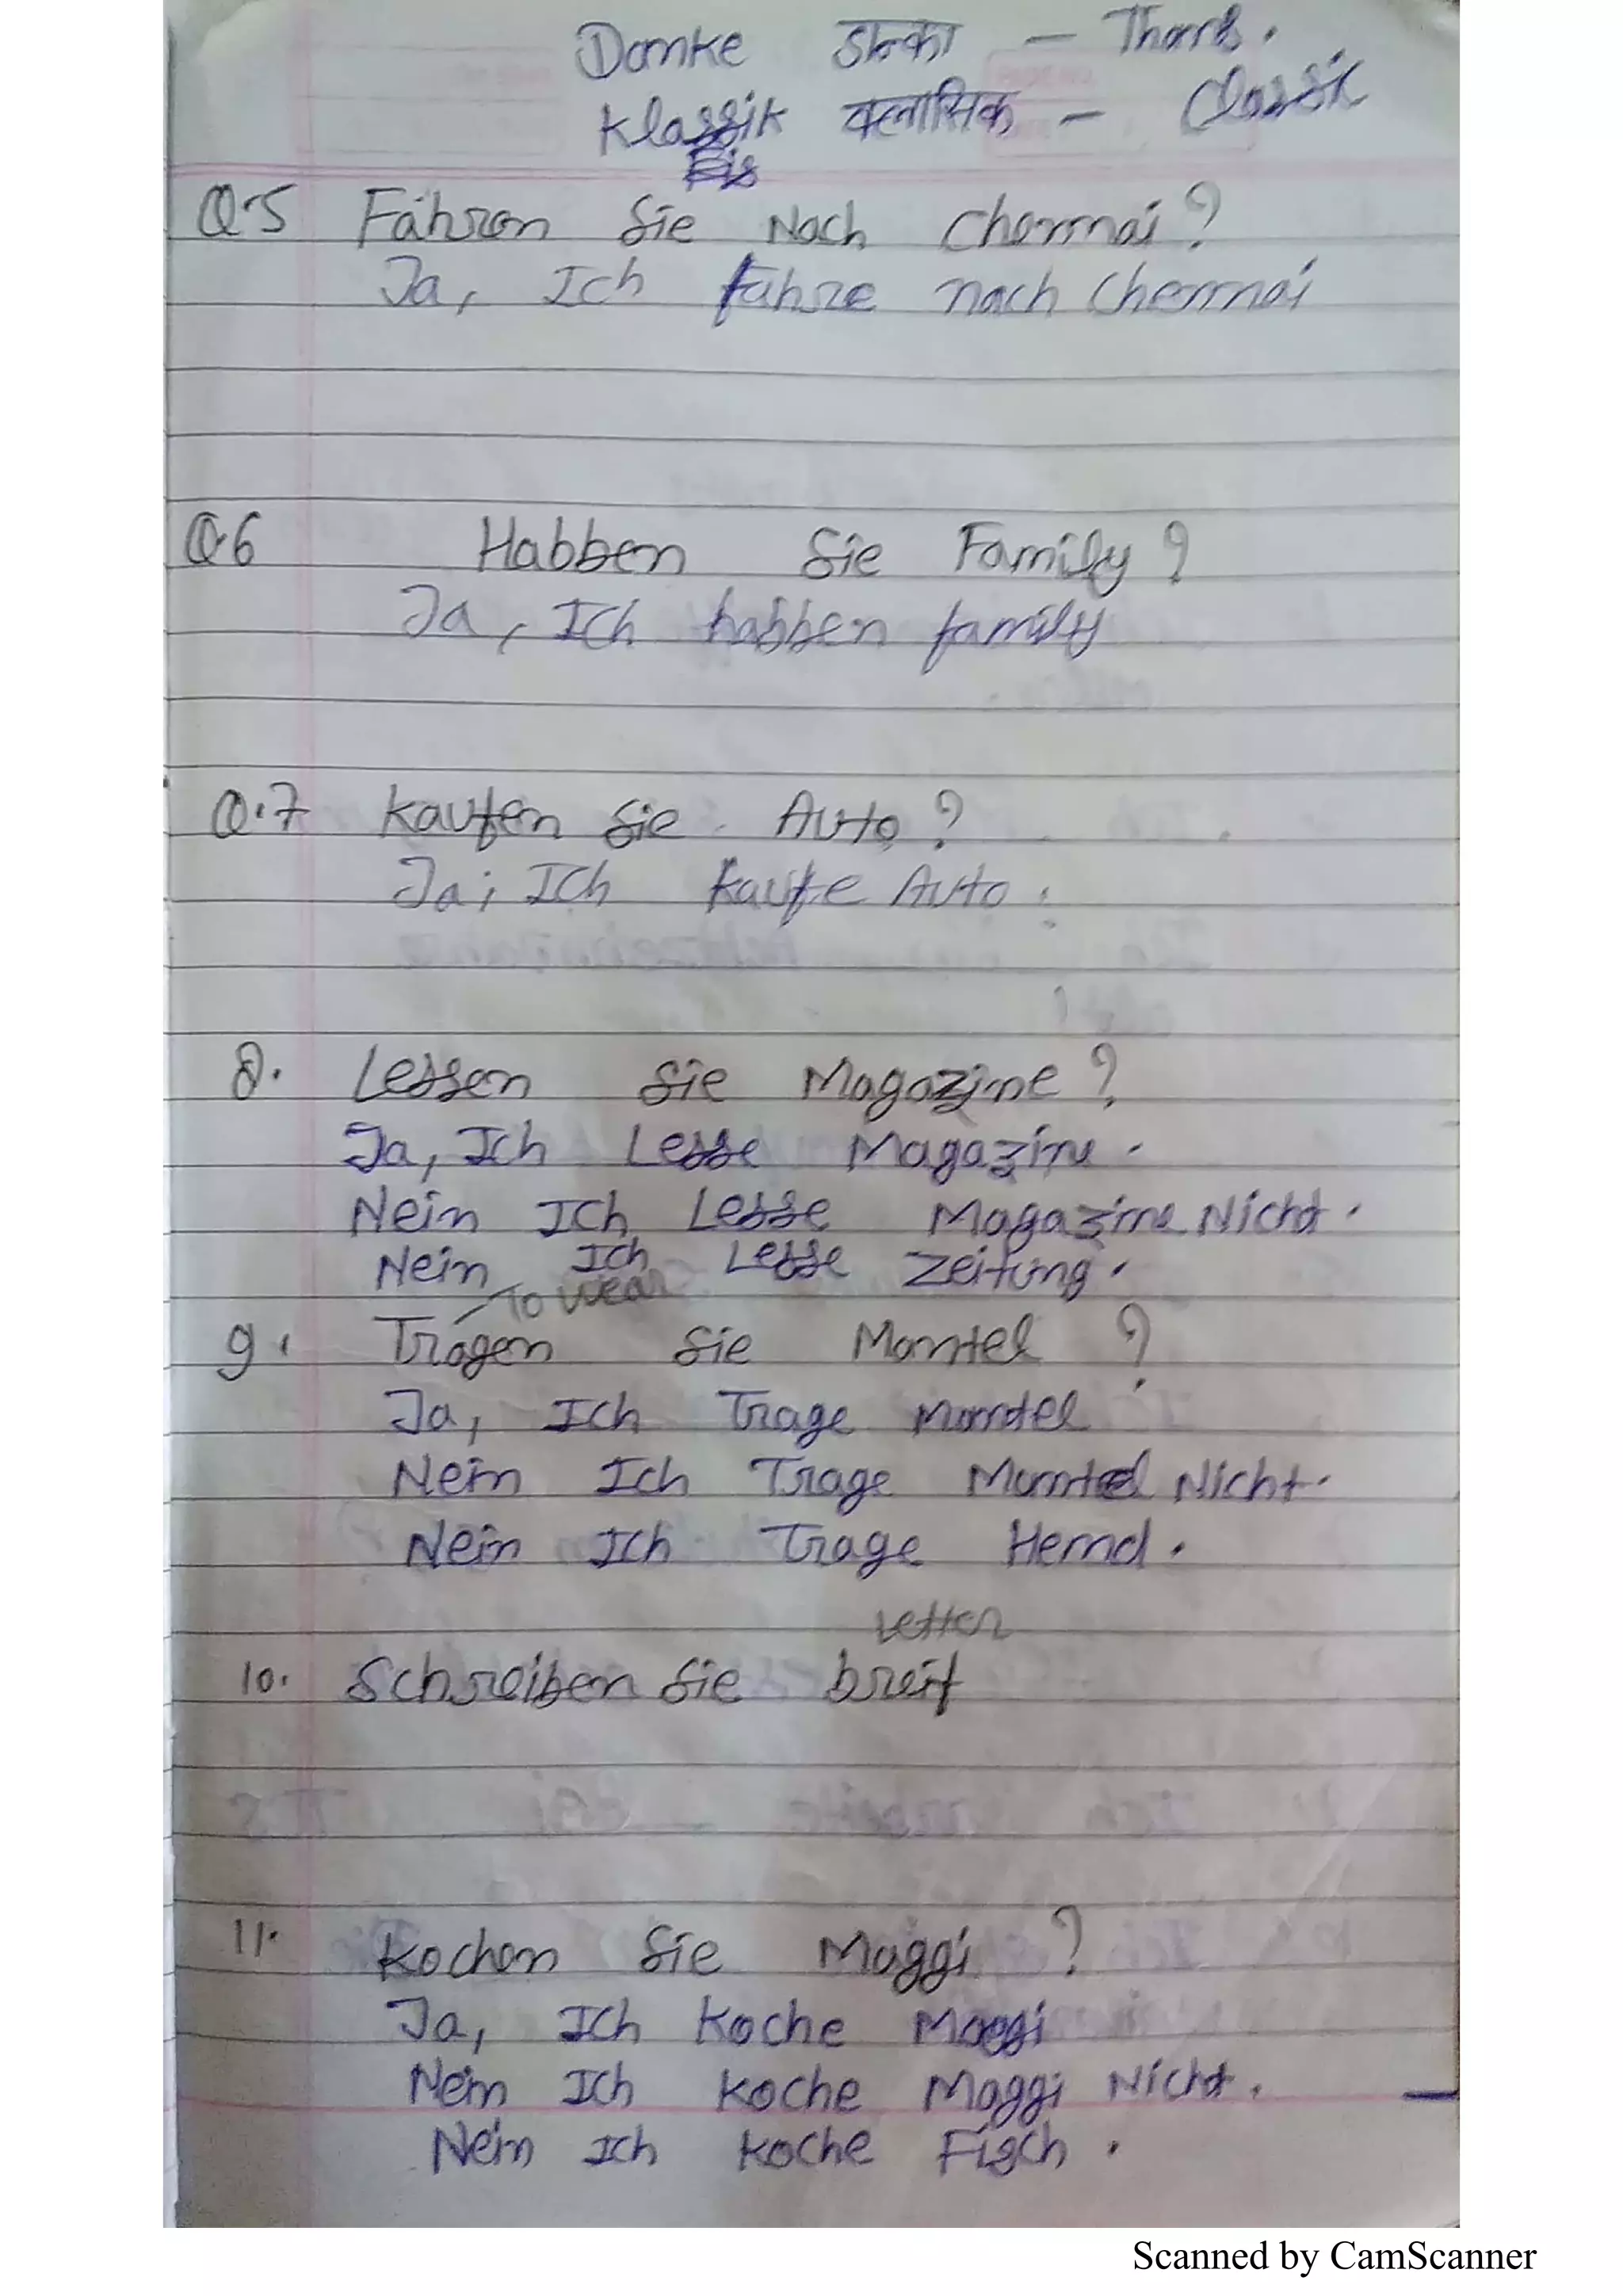 Danke डान्का - Thanks.
Klassik क्लासिक - Classik
Eis
Q.5 Fahren Sie Nach Chennai?
Ja, Ich fahre nach Chennai
Q.6 Habben Sie Family?
Ja, Ich habben family
Q.7 Kaufen Sie Auto?
Ja, Ich Kaufe Auto.
8. Lessen Sie Magazine?
Ja, Ich Lesse Magazine.
Nein Ich Lesse Magazine Nicht.
Nein Ich Lesse Zeitung.
To wear
9. Tragen Sie Mantel?
Ja, Ich Trage Mantel
Nein Ich Trage Mantel Nicht.
Nein Ich Trage Hemd.
Letter
10. Schreiben Sie breif
11. Kochen Sie Maggi?
Ja, Ich Koche Maggi
Nein Ich Koche Maggi Nicht.
Nein Ich Koche Fisch.
Scanned by CamScanner